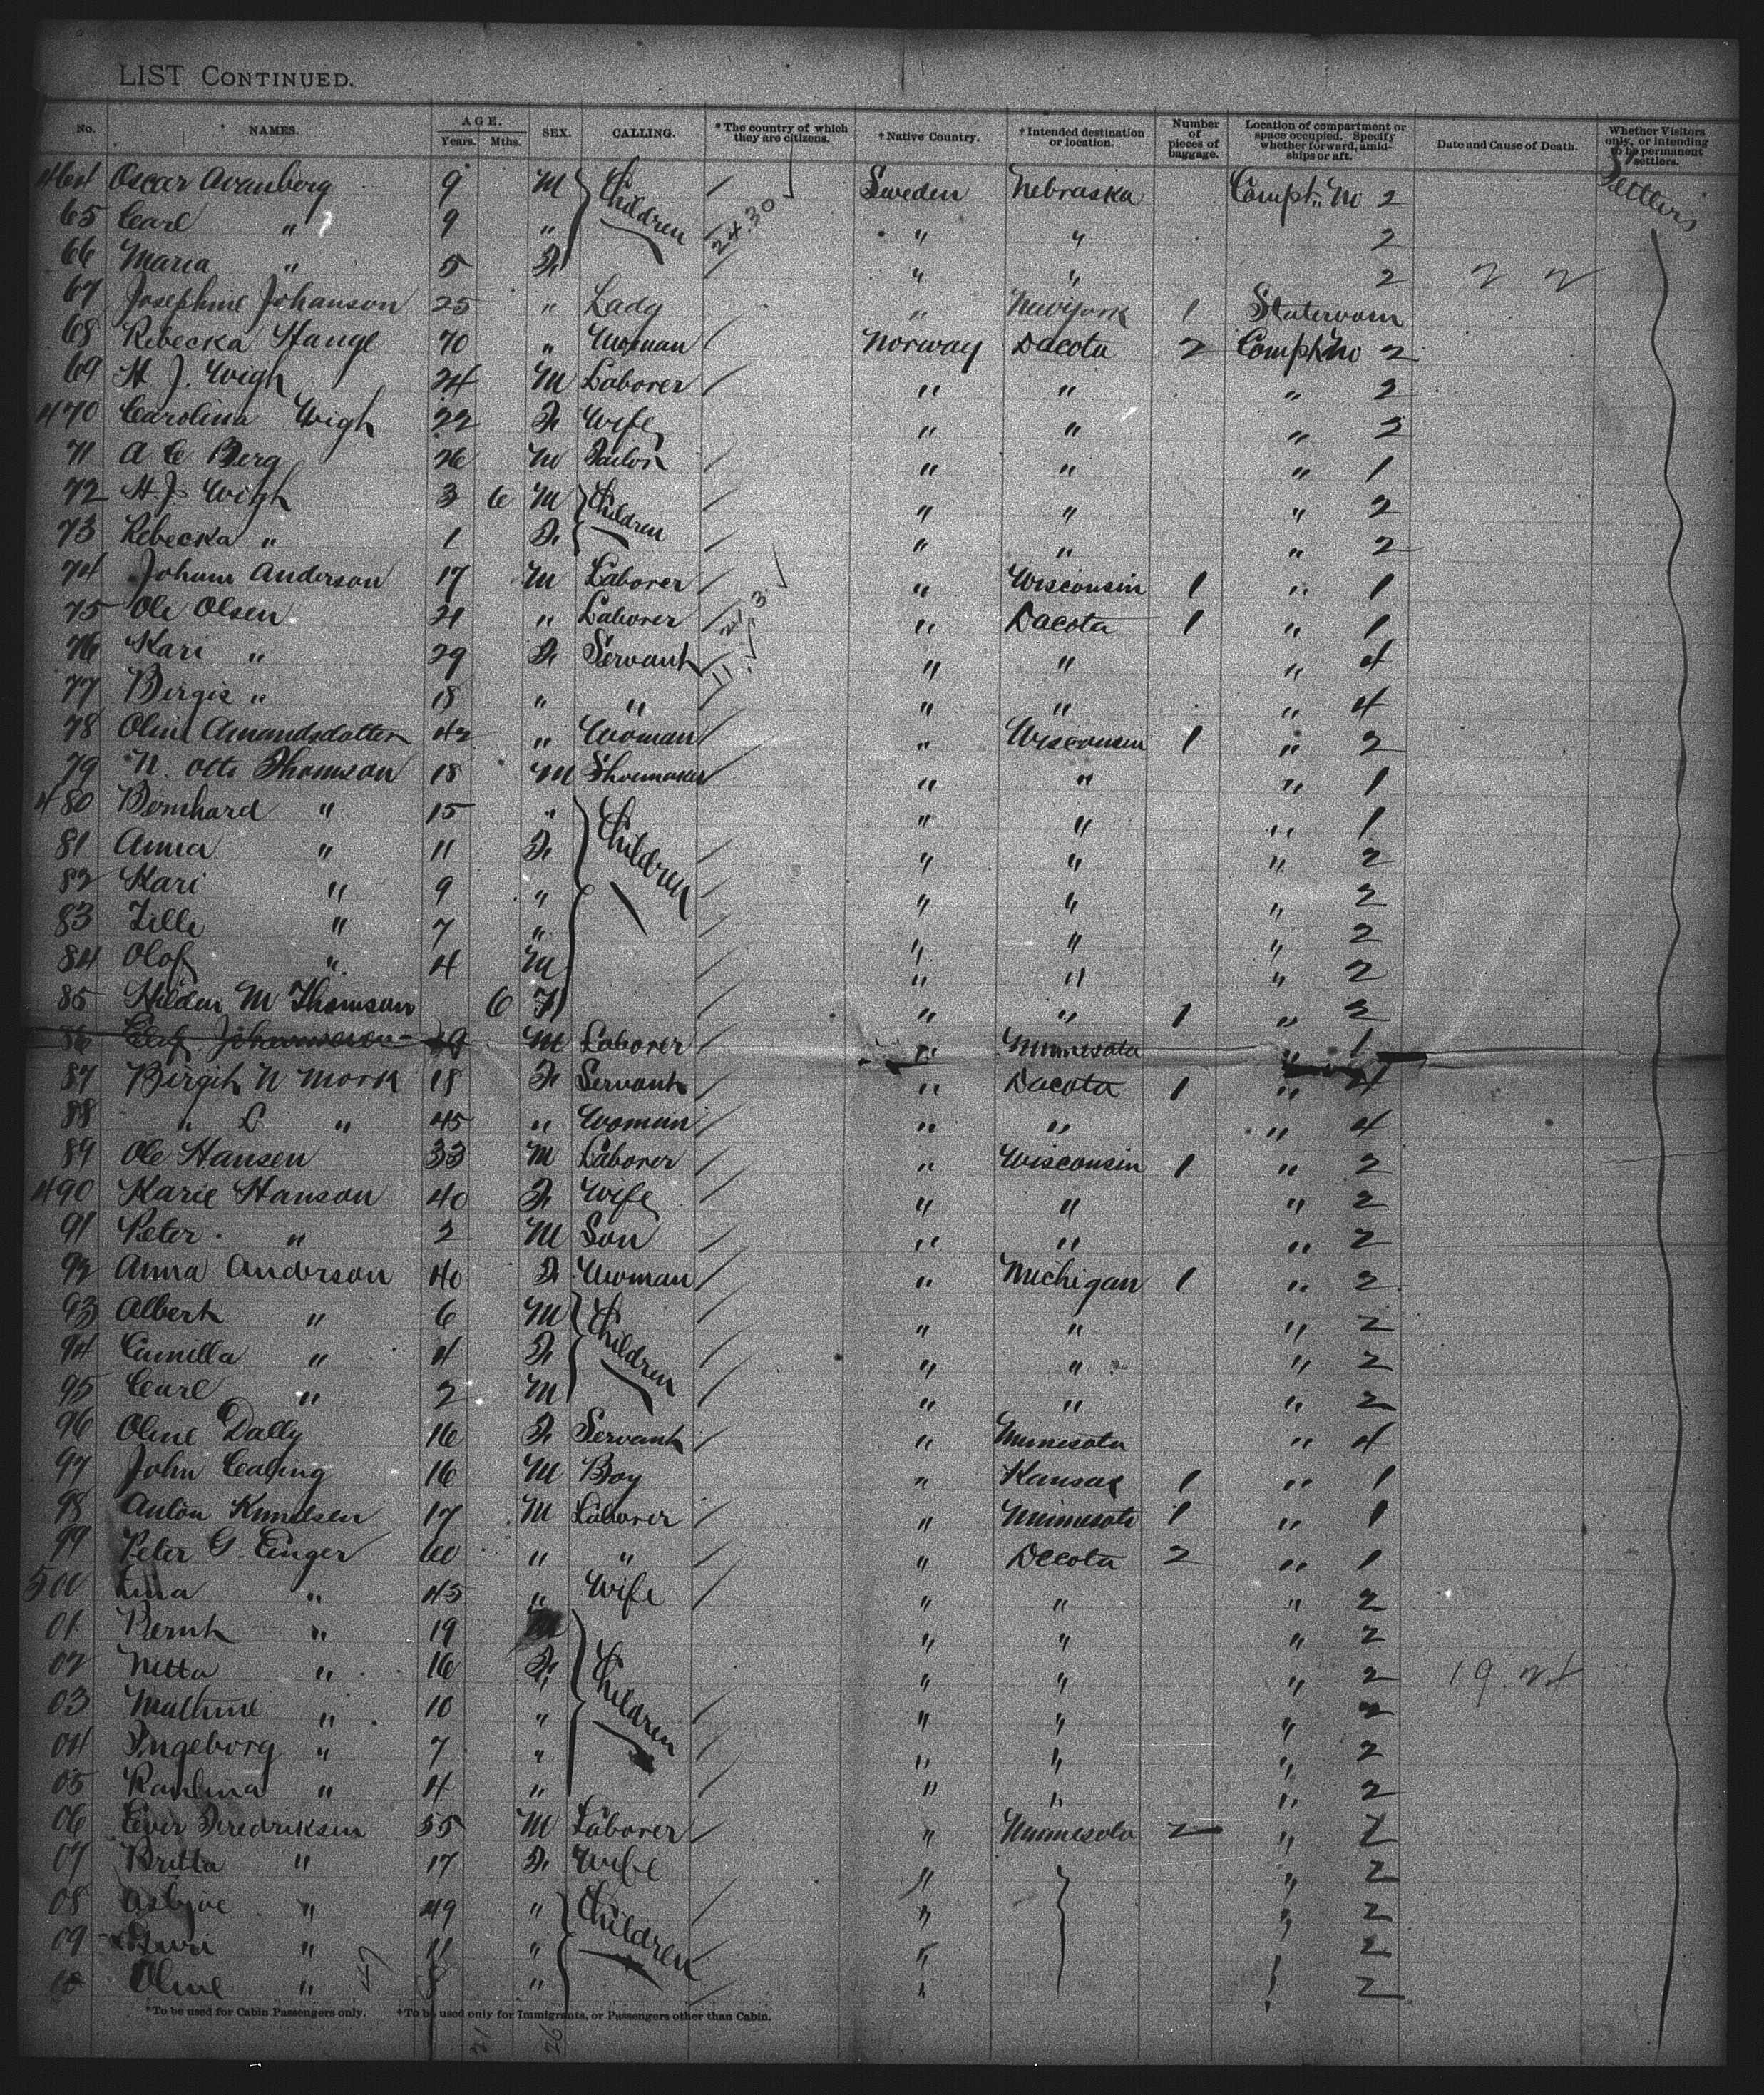 LIST CONTINUED.
No. NAMES. AGE. Years. Mths. SEX. CALLING. *The country of which they are citizens. †Native Country. †Intended destination or location. Number of pieces of baggage. Location of compartment or space occupied. Specify whether forward, amidships or aft. Date and Cause of Death. Whether Visitors only, or intending to be permanent settlers.
464 Oscar 9 M Children Sweden Nebraska Compt. No 2 Settlers
65 Carl " 9 " 24.30 " " 2
66 Maria " 5 F " " 2 2 2
67 Josephine Johanson 25 " Lady " New York 1 Stateroom
68 Rebecka Hauge 70 " Woman Norway Dacota 2 Compt No 2
69 H. J. Wigh 24 M Laborer " " " 2
470 Carolina Wigh 22 F Wife " " " 2
71 A C Berg 26 M Tailor " " " 1
72 H. J. Wigh 3 6 M Children " " " 2
73 Rebecka " 1 F " " " 2
74 Johan Anderson 17 M Laborer " Wisconsin 1 " 1
75 Ole Olsen 21 " Laborer " Dacota 1 " 1
76 Kari " 29 F Servant " " " 4
77 " 18 " " " " " 4
78 Oline Amandsdatter 42 " Woman " Wisconsin 1 " 2
79 N. Otto Thomson 18 M Shoemaker " " " 1
480 Bernhard " 15 " Children " " " 1
81 Anna " 11 F " " " 2
82 Kari " 9 " " " " 2
83 " 7 " " " " 2
84 Olof " 4 M " " " 2
85 M Thomson 6 F " " 1 " 2
86 M Laborer " Minnesota " 1
87 Birgit N Mork 18 F Servant " Dacota 1 " 4
88 " L " 45 " Woman " " " 4
89 Ole Hansen 33 M Laborer " Wisconsin 1 " 2
490 Karie Hanson 40 F Wife " " " 2
91 Peter " 2 M Son " " " 2
92 Anna Anderson 40 F Woman " Michigan 1 " 2
93 Albert " 6 M Children " " " 2
94 Camilla " 4 F " " " 2
95 Carl " 2 M " " " 2
96 Oline Dally 16 F Servant " Minnesota " 4
97 John 16 M Boy " Kansas 1 " 1
98 Anton Knudsen 17 M Laborer " Minnesota 1 " 1
99 Peter G. Enger 60 " " " Decota 2 " 1
500 " 45 " Wife " " " 2
01 Bernt " 19 M Children " " " 2
02 Netta " 16 F " " " 2 19.24
03 Mathine " 10 " " " " 2
04 Ingeborg " 7 " " " " 2
05 " 4 " " " " 2
06 Fredriksen 55 M Laborer " Minnesota 2 " 2
07 Britta " 17 F Wife " " 2
08 " 49 " Children " " 2
09 Guri " 11 " " " 2
10 Oline " 8 " " 2
*To be used for Cabin Passengers only. †To be used only for Immigrants, or Passengers other than Cabin.
21 26